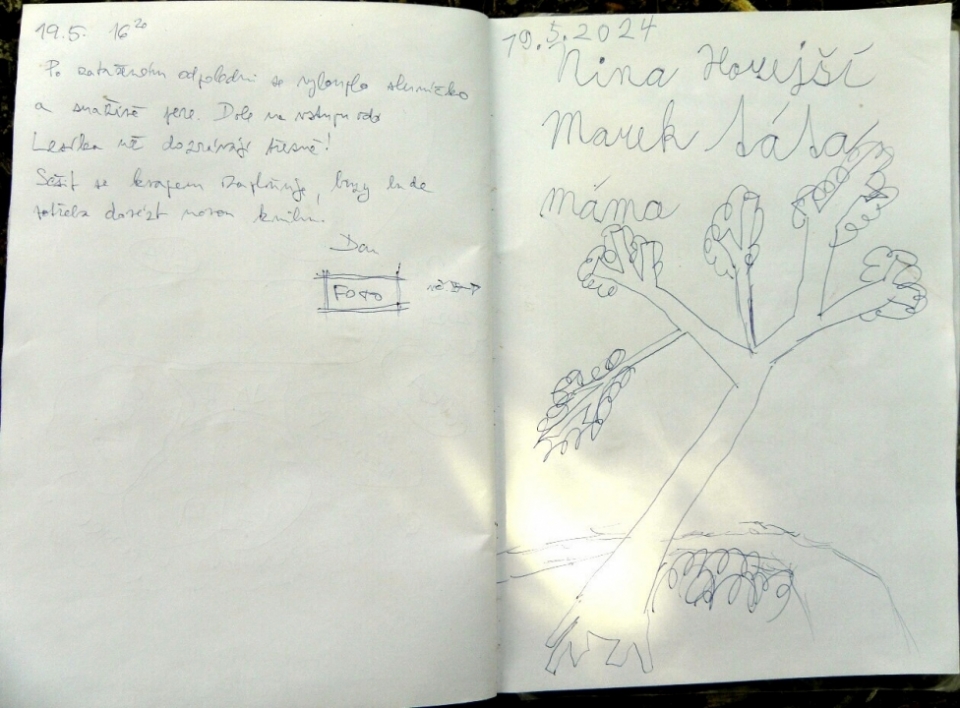 19.5. 16²⁰
Po zataženém odpoledni se vyloupло sluníčko
a snaživě peče. Dole na vstupu do
Lesíka už dozrávají třešně!
Sešit se krapem zaplňuje, brzy bude
potřeba dovézt novou knihu.
Dan
FOTO
19.5.2024
Nina Hovejší
Marek táta
máma